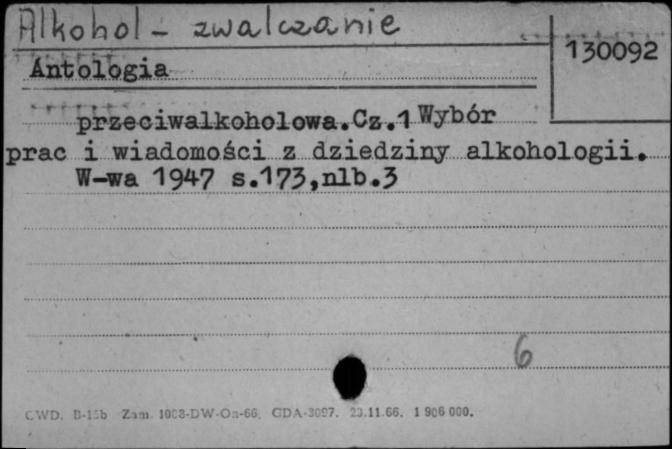 Alkohol - zwalczanie
130092
Antologia
przeciwalkoholowa.Cz.1 Wybór
prac i wiadomości z dziedziny alkohologii.
W-wa 1947 s.173,nlb.3
6
CWD. Zam. GDA-3097. 23.11.66. 1 906 000.